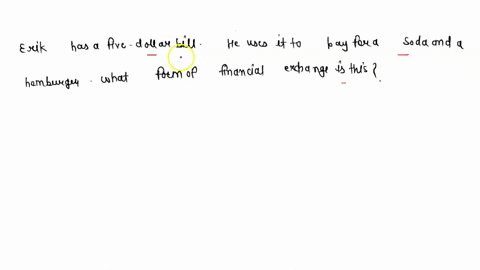 Erik has a five-dollar bill. He uses it to pay for a soda and a
hamburger. what form of financial exchange is this?.